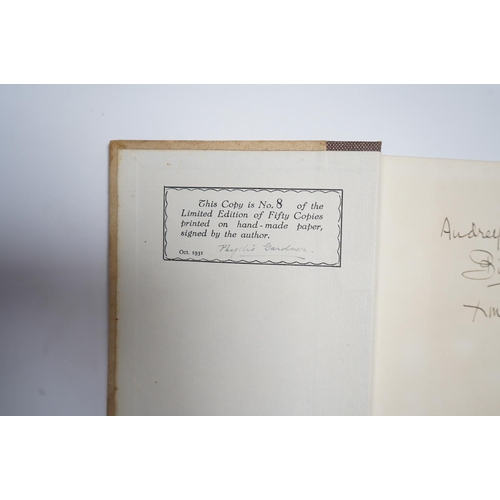 This Copy is No. 8 of the
Limited Edition of Fifty Copies
printed on hand-made paper,
signed by the author.
Oct. 1931 Phyllis Gardner.
Audrey